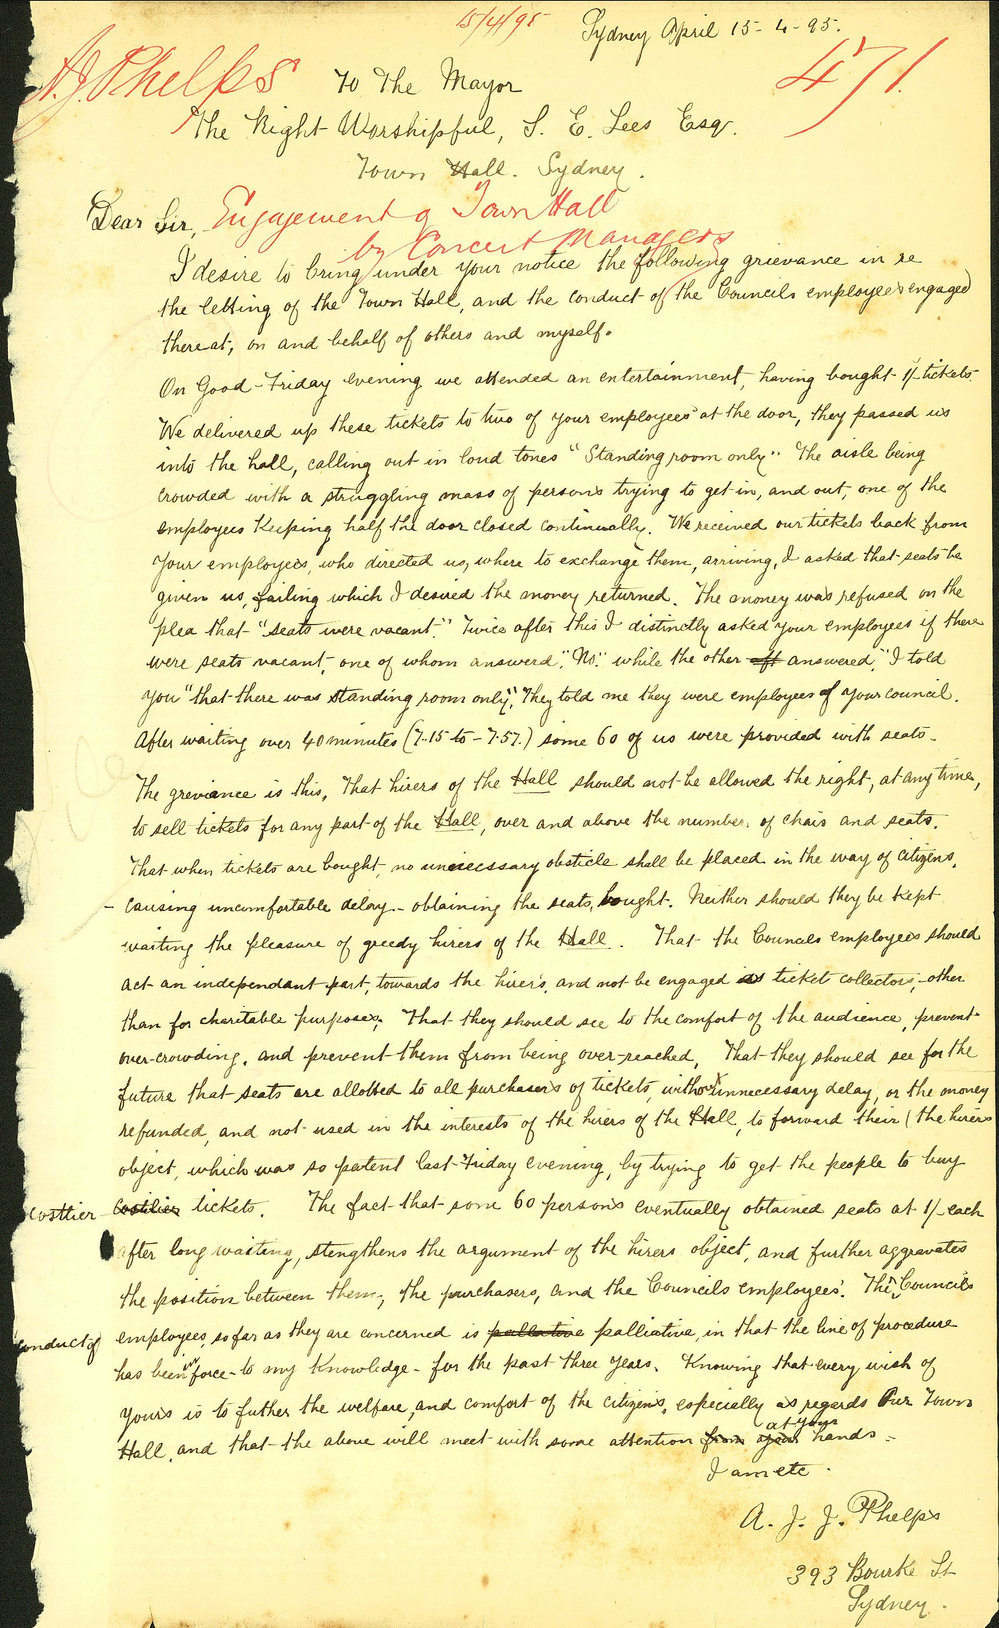 15/4/95
Sydney April 15-4-95.
A.J. Phelps
471.
To The Mayor
The Right Worshipful, S. E. Lees Esqr.
Town Hall. Sydney.
Dear Sir,
Engagement of Town Hall
by Concert Managers
I desire to bring under your notice the following grievance in re
the letting of the Town Hall, and the conduct of the Councils employees engaged
thereat, on and behalf of others and myself.
On Good-Friday evening we attended an entertainment, having bought 1/- tickets.
We delivered up these tickets to two of your employees at the door, they passed us
into the hall, calling out in loud tones "Standing room only". The aisle being
crowded with a struggling mass of persons trying to get in, and out, one of the
employees keeping half the door closed continually. We received our tickets back from
your employees, who directed us, where to exchange them, arriving, I asked that seats be
given us, failing which I desired the money returned. The money was refused on the
plea that "seats were vacant." Twice after this I distinctly asked your employees if there
were seats vacant, one of whom answerd, "No." while the other aft answered, "I told
you "that there was standing room only". They told me they were employees of your council.
After waiting over 40 minutes (7.15 to - 7.57.) some 60 of us were provided with seats.
The greviance is this, That hirers of the Hall should not be allowed the right, at any time,
to sell tickets for any part of the Hall, over and above the number of chais and seats.
That when tickets are bought, no unnecessary obsticle shall be placed in the way of citizens,
- causing uncomfortable delay - obtaining the seats, bought. Neither should they be kept
waiting the pleasure of greedy hirers of the Hall. That the Councels employees should
act an independant part, towards the hirers, and not be engaged as ticket collectors, other
than for charetable purposes; That they should see to the comfort of the audience, prevent
over-crowding, and prevent them from being over-reached, That they should see for the
future that seats are allotted to all purchasers of tickets, without unnecessary delay, or the money
refunded, and not used in the interests of the hirers of the Hall, to forward their (the hirers
object, which was so patent last Friday evening, by trying to get the people to buy
costtier costilier tickets. The fact that some 60 persons eventually obtained seats at 1/- each
after long waiting, stengthens the argument of the hirers object, and further aggravates
the position between them, the purchasers, and the Councils employees. The Councils
conduct of employees, so far as they are concerned is pallative palliative, in that the line of procedure
has been in force - to my knowledge - for the past three years. Knowing that every wish of
yours is to futher the welfare, and comfort of the citizens, especially as regards Our Town
Hall, and that the above will meet with some attention from your at your hands.
I am etc.
A. J. J. Phelps
393 Bourke St
Sydney.